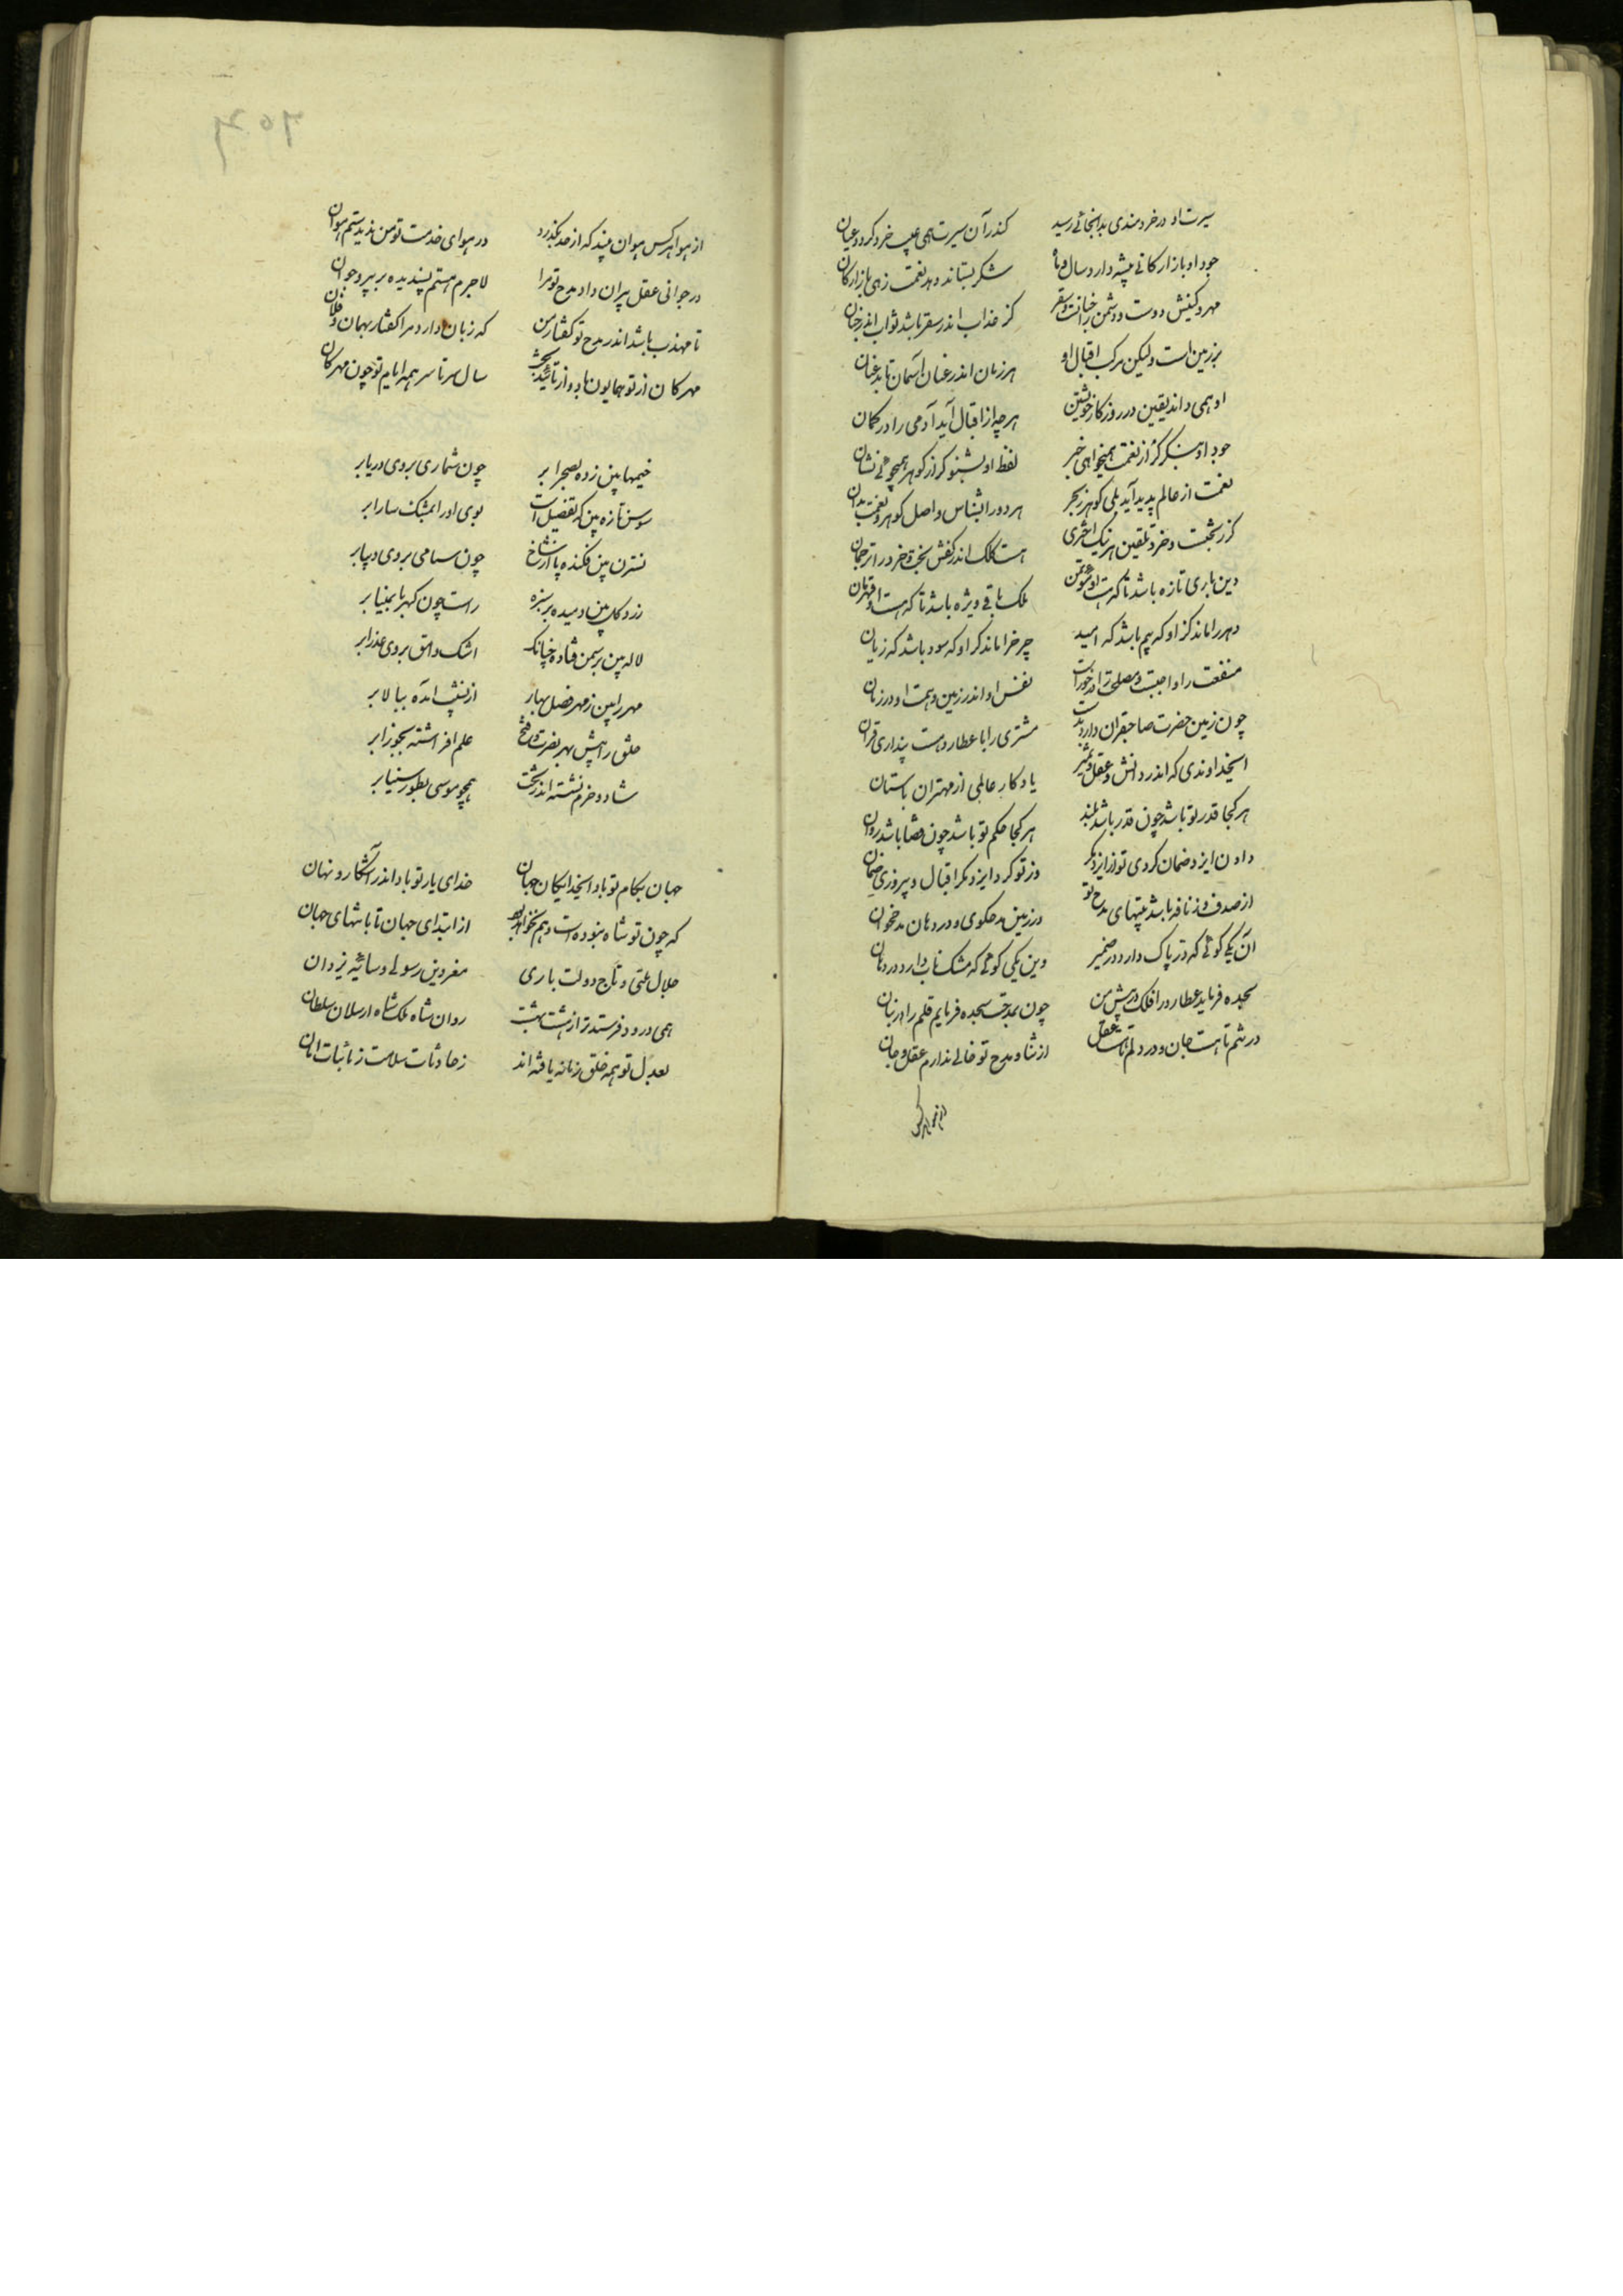 سیرت او در خردمندی بدانجائی رسید کندر آن سیرت همی عیب خرد کردد عیان
جود او بازارکانی پیشه دارد سال و ماه شکر بستاند دهد نعمت زهی بازارکان
مهر و کینش دوست و دشمن را جنانست و سقر کز عذاب اندر سقر باشد ثواب اندر جنان
بر زمین است ولیکن مرکب اقبال او هر زمان اندر عنان آسمان تابد عنان
او همی داند یقین در روزکار خویشتن هرچه از اقبال آید آدمی را در کمان
جود او بنکر کر از نعمت همیخواهی خبر لفظ او بشنو کر از کوهر همیجوئی نشان
نعمت از عالم پدید آید بلی کوهر ز بحر هر دو را بشناس و اصل کوهر و نعمت بدان
کز بختست و خرد تلقین هر نیک اختری هست کلک اندر کفش بخت و خرد را ترجمان
دین باری تازه باشد تا که هست او مؤتمن ملک باقی ویژه باشد تا که هست او قهرمان
دهر را ماند کز او که بیم باشد که امید چرخ را ماند کز او که سود باشد که زیان
منفعت را واجبست و مصلحت را در خورست نفس او اندر زمین و همت او در زمان
چون زمین حضرت صاحبقران دارد بدست مشتری را با عطارد هست پنداری قران
ایخداوندی که اندر دانش و عقل و تمیز یادکار عالمی از مهتران باستان
هر کجا قدر تو باشد چون قدر باشد بلند هر کجا حکم تو باشد چون قضا باشد روان
دادن ایزد ضمان کردی تو از ایزد مکر وز تو کرد ایزد مکر اقبال و پیروزی ضمان
از صدف وز نافه باشد بیتهای مدح تو در زمین مدحکوی و در دهان مدحخوان
آن یکی کوئی که در پاک دارد در ضمیر وین یکی کوئی که مشک ناب دارد در دهان
سجده فرماید عطارد را فلک در پیش من چون بمدحت سجده فرمایم قلم را هر زمان
در تنم تا هست جان و در دلم تا هست عقل از ثنا و مدح تو خالی ندارم عقل و جان
از هوا هر کس
از هوا هر کس هوان بیند که از حد بکذرد در هوای خدمت تو من ندیدستم هوان
در جوانی عقل پیران داد مدح تو مرا لاجرم هستم پسندیده بر پیر و جوان
تا مهذب باشد اندر مدح تو کفتار من که زبان دارد مرا کفتار بهمان و فلان
مهرکان از تو همایون باد و از تأیید بخت سال سرتاسر همه ایام تو چون مهرکان
خیمها بین زده بصحرا بر چون شماری بروی دریا بر
سوسن تازه بین که تفضیل است بوی او را بمشک سارا بر
نسترن بین فکنده پا از شاخ چون سامی بروی دیبا بر
زرد کل بین دمیده بر سبزه راست چون کهربا بمینا بر
لاله بین بر سمن فتاده چنانک اشک وامق بروی عذرا بر
مهر را بین ز مهر فصل بهار از نشیب آمده ببالا بر
خلق را پیش بهر نصرت و فتح علم افراشته بجوزا بر
شاد و خرم نشسته اندر تخت همچو موسی بطور سینا بر
جهان بکام تو باد ایخدایکان جهان خدای یار تو باد اندر آشکار و نهان
که چون تو شاه نبوده است و هم نخواهد بود از ابتدای جهان تا بانتهای جهان
جلال ملتی و تاج دولت باری مغز دین رسولی و سایۀ یزدان
همی درود فرستد ترا ز هشت بهشت روان شاه ملکشاه ارسلان سلطان
بعدل تو همه خلق زمانه یافته اند ز حادثات سلامت ز نائبات امان